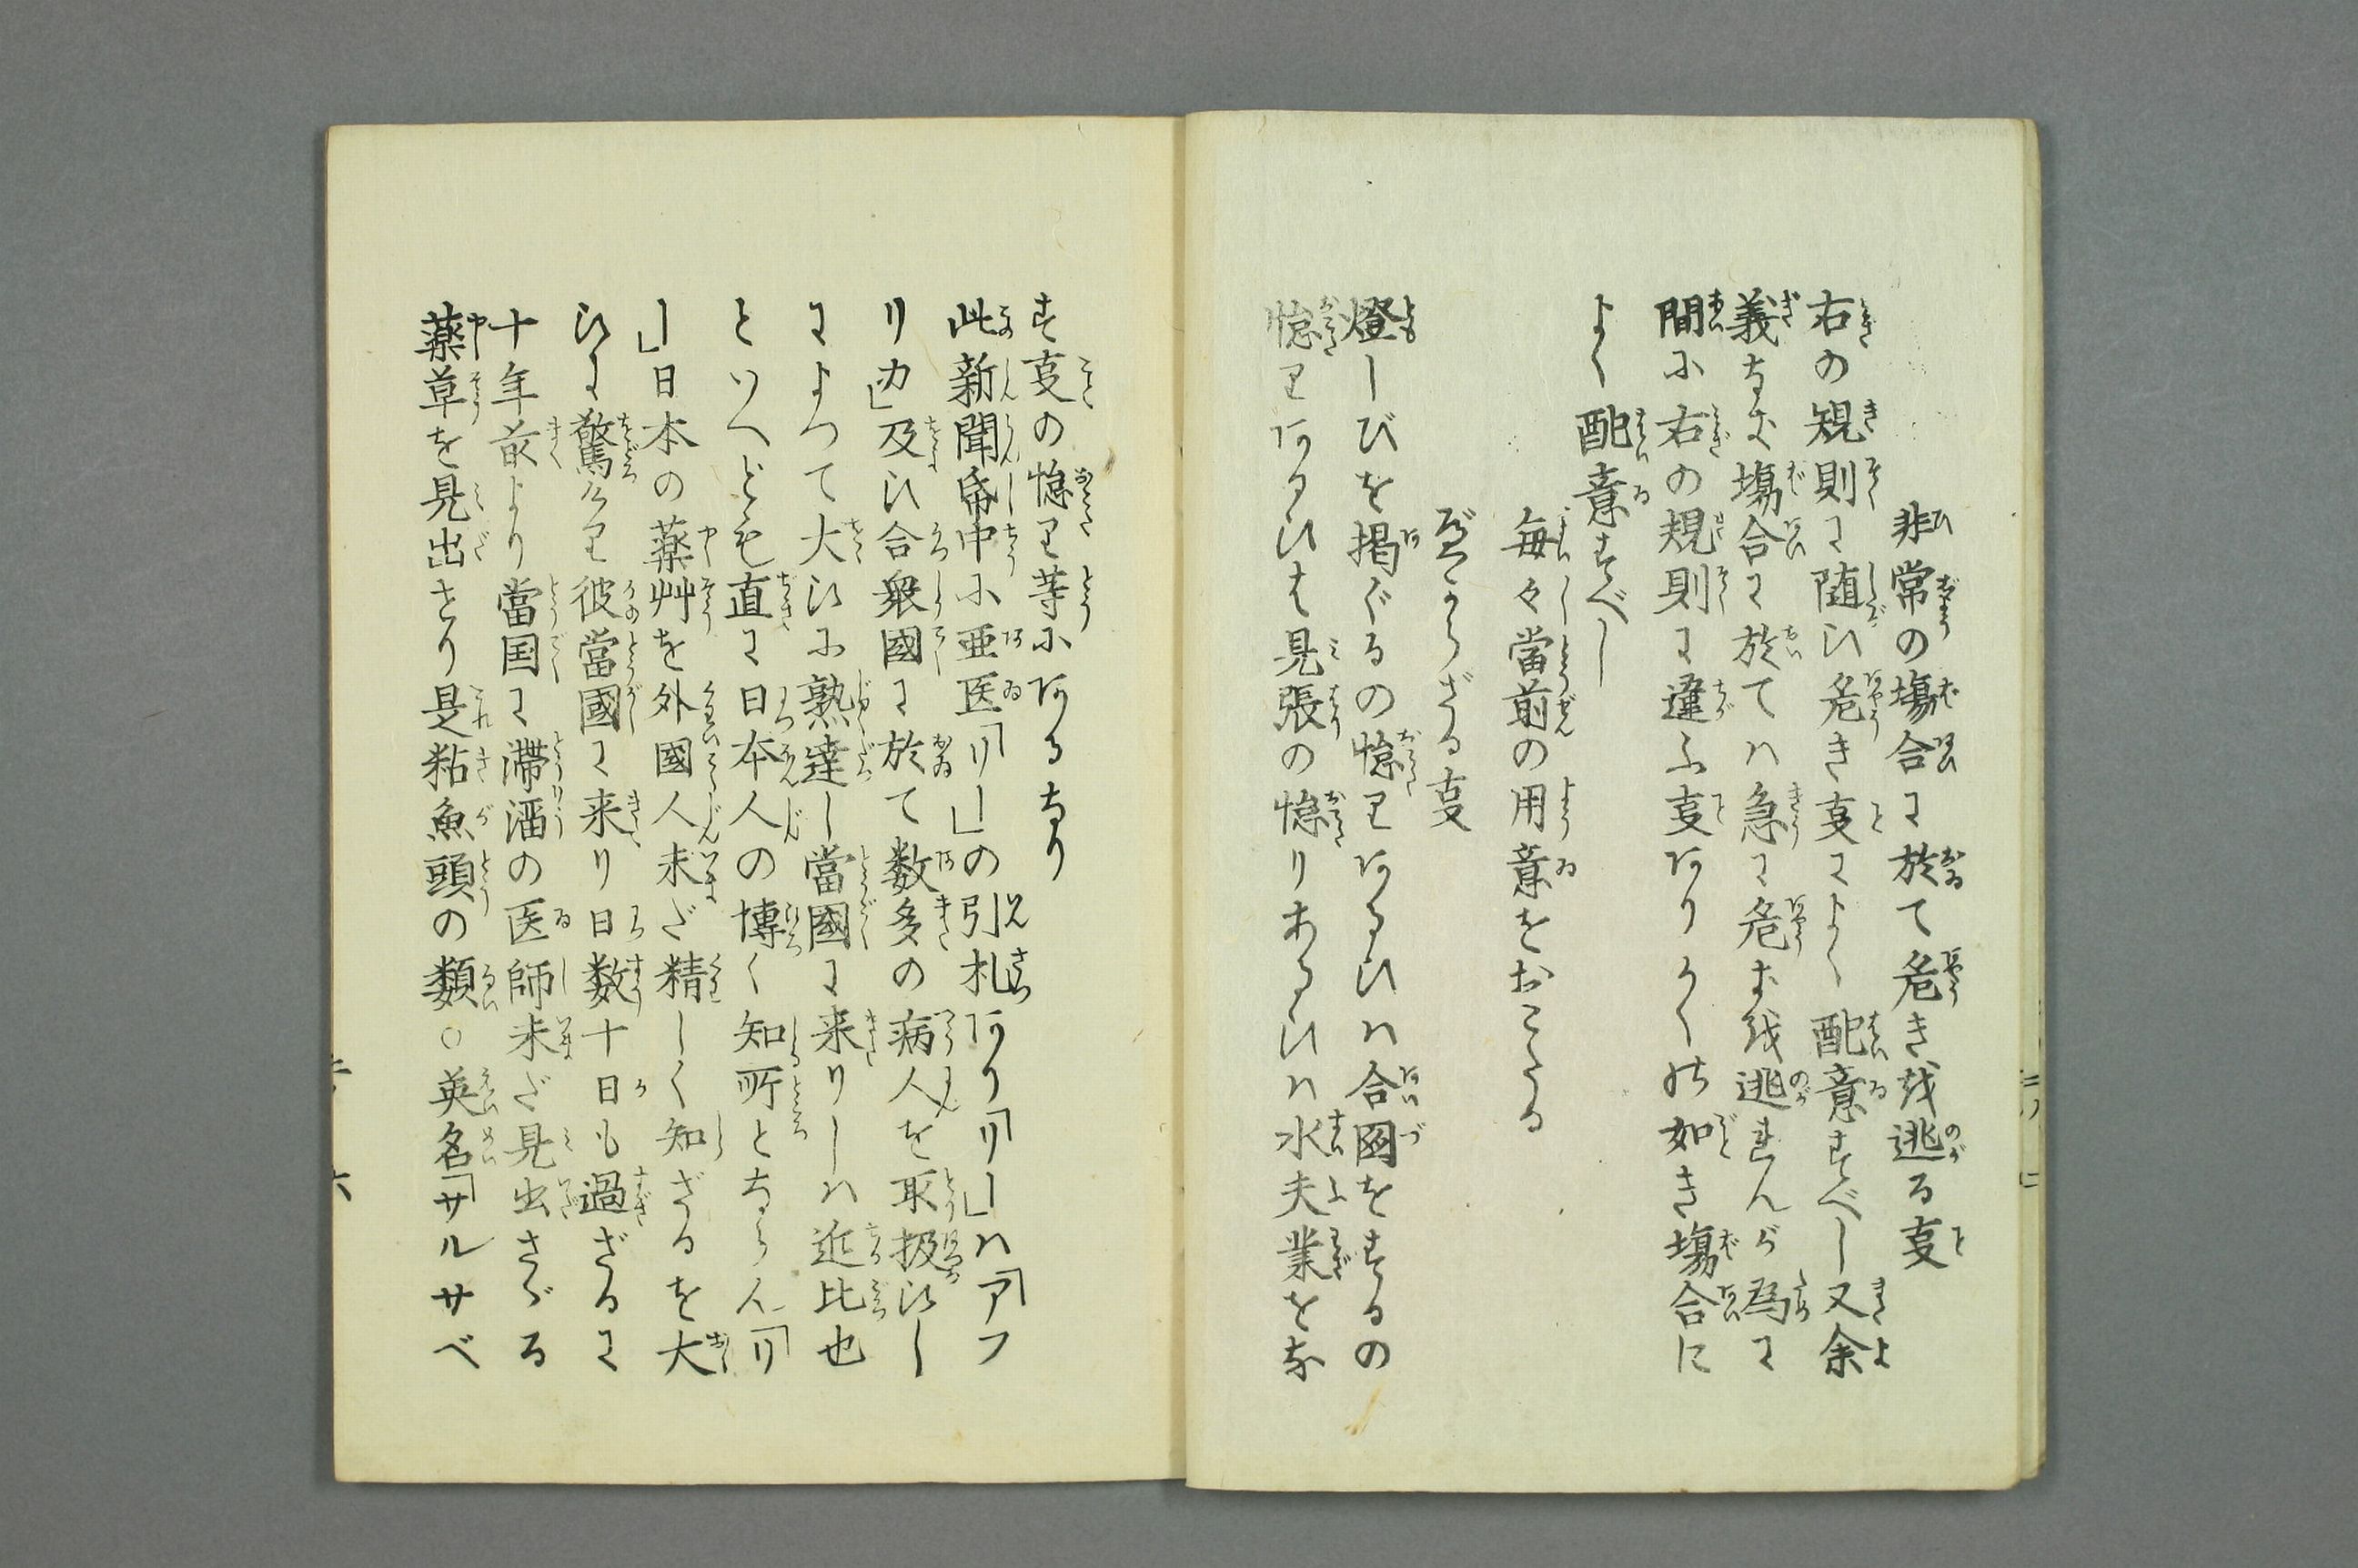 非常の場合に於て危きを逃る事
右の規則に随ひ危き事によく配意すべし又余
義なき場合に於てハ急に危きを逃れんが為に
間に右の規則に違ふ事ありかくの如き場合に
よく配意すべし
毎々當前の用意をおこたる
べからざる事
燈しびを揭ぐるの怠りあるひハ合圖をするの
怠りあるひは見張の怠りあるひハ水夫業をな
す事の怠り等にあるなり
此新聞帋中に亜医「リー」の引札あり「リー」ハ「アフ
リカ」及ひ合衆國に於て数多の病人を取扱ひし
によつて大ひに熟達し當國に来りしハ近比也
といへども直に日本人の博く知所とならん「リ
ー」日本の薬艸を外國人未だ精しく知ざるを大
ひに驚けり彼當國に来り日数十日も過ざるに
十年前より當国に滞溜の医師未だ見出さゞる
薬草を見出せり是粘魚頭の類○英名「サルサベ